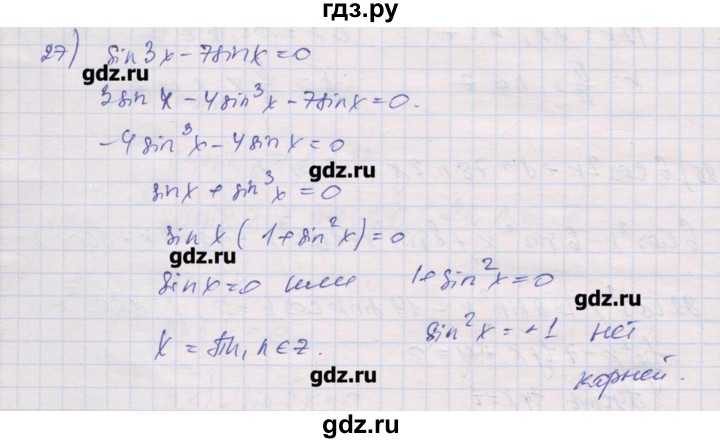 гдз.ру
27) sin3x - 7sinx = 0
gdz.ru
3sin x - 4sin³x - 7sinx = 0.
-4sin³x - 4sinx = 0
gdz.ru
sinx + sin³x = 0
sin x (1 + sin²x) = 0
gdz.ru
sinx = 0 или 1 + sin²x = 0
gdz.ru
x = πn, n ∈ z. sin²x = -1 нет
корней.
gdz.ru